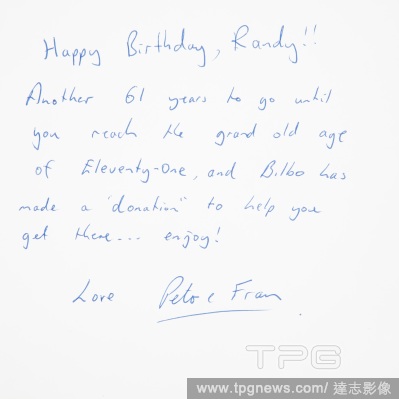 Happy Birthday, Randy!!
Another 61 years to go until
you reach the grand old age
of Eleventy-One, and Bilbo has
made a "donation" to help you
get there... enjoy!
Love Pete & Fran
TPG
www.tpgnews.com/ 達志影像